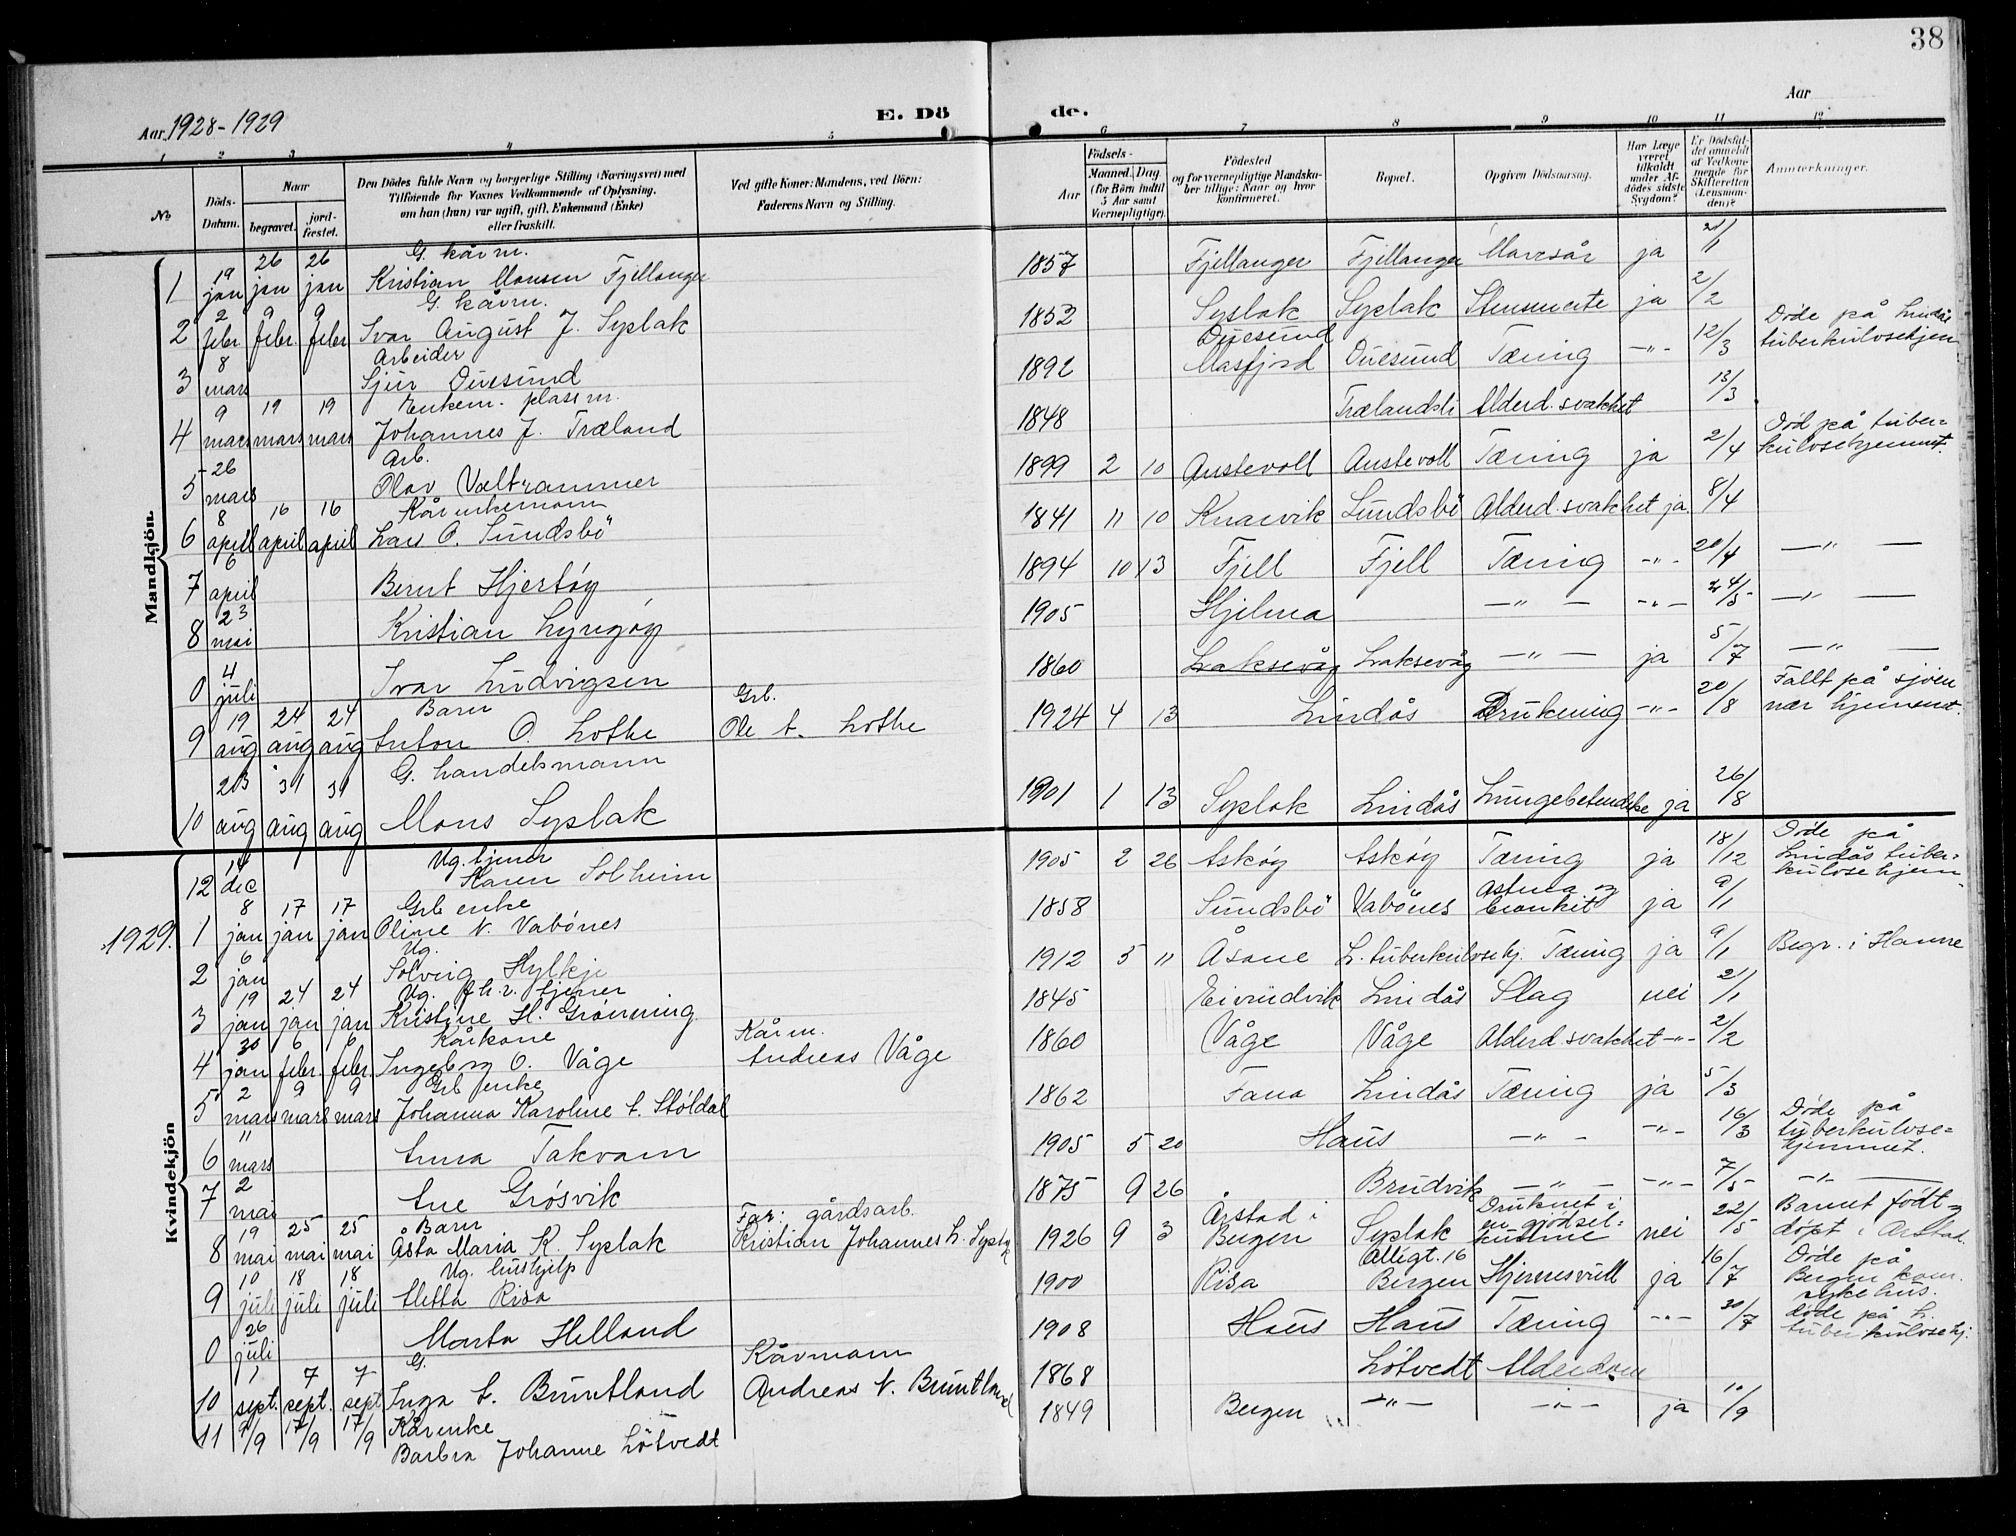 38
Aar 1928-1929
E. Dö
de.
Aar
1 2 3 4 5 6 7 8 9 10 11 12
No
Döds-Datum.
Naar
begravet.
jord-fæstet.
Den Dödes fulde Navn og borgerlige Stilling (Næringsvei) med
Tilföiende for Voxnes Vedkommende af Oplysning,
om han (hun) var ugift, gift, Enkemand (Enke)
eller fraskilt.
Ved gifte Koner: Mandens, ved Börn:
Faderens Navn og Stilling.
Födsels-
Aar
Maaned. Dag.
(for Börn indtil
5 Aar samt
Værnepligtige).
Födested
og for værnepligtige Mandska-
ber tillige: Naar og hvor
konfirmeret.
Bopæl.
Opgiven Dödsaarsag.
Har Læge
været
tilkaldt
under Af-
dödes sidste
Sygdom?
Er Dödsfal-
det anmeldt
af Vedkom-
mende for
Skifteretten
(Lensman-
den)?
Anmærkninger.
Mandkjön.
1 19 jan 26 jan 26 jan G. kårm. Kristian Monsen Fjellanger 1857 Fjellanger Fjellanger Mavesår ja 21/1
2 2 febr 9 febr. 9 febr G. kårm. Ivar August J. Syslak 1852 Syslak Syslak ja 2/2
3 8 mars Arbeider Sjur Duesund 1892 Duesund Masfjord Duesund Tæring -"- 12/3 Døde på Lindås tuberkulosehjem
4 9 mars 19 mars 19 mars Enkem. plassm. Johannes J. Træland 1848 Trælandsli Alderd. svakhet 13/3
5 26 mars Arb. Olav Valtrammer 1899 2 10 Austevoll Austevoll Tæring ja 2/4 Død på tuberkulosehjemmet.
6 8 april 16 april 16 april Kårenkemann Lars O. Sundsbö 1841 11 10 Knarvik Sundsbö Alderd. svakhet ja 8/4
7 6 april Bernt Hjertøy 1894 10 13 Fjell Fjell Tæring -"- 20/4 -"-
8 23 mai Kristian Lyngøy 1905 Hjelma -"- -"- 24/5 -"-
0 4 juli Ivar Ludvigsen 1860 Laksevåg Laksevåg -"- ja 5/7 -"-
9 19 aug 24 aug 24 aug Barn Anton O. Lothe Grb. Ole A. Lothe 1924 4 13 Lindås Drukning -"- 20/8 Fallt på sjøen nær hjemmet.
10 23 aug 31 aug 31 aug G. handelsmann Mons Syslak 1901 1 13 Syslak Lindås Lungebetendelse ja 26/8
Kvindekjön
12 14 dec Ug. tjener Karen Solheim 1905 2 26 Askøy Askøy Tæring ja 18/12 Døde på Lindås tuberkulosehjem.
1929. 1 8 jan 17 jan 17 jan Grb enke Oline N. Vabönes 1858 Sundsbö Vabönes Astma og bronkit ja 9/1
2 6 jan Ug. Solveig Hylkje 1912 5 11 Åsane L. tuberkulosehj. Tæring ja 9/1 Begr. i Hamre
3 19 jan 24 jan 24 jan Ug. fh.v. tjener Kristine H. Grønning 1845 Eivindvik Lindås Slag nei 21/1
4 30 jan 6 febr. 6 febr. Kårkone Ingeborg O. Våge Kårm. Andreas Våge 1860 Våge Våge Alderd. svakhet -"- 2/2
5 2 mars 9 mars 9 mars Grb enke Johanna Karoline A. Støldal 1862 Fana Lindås Tæring ja 5/3
6 11 mars Anna Takvam 1905 5 20 Haus -"- -"- 16/3 Døde på tuberkulosehjemmet.
7 2 mai Ane Grøsvik 1875 9 26 Brudvik -"- -"- 7/5 -"-
8 19 mai 25 mai 25 mai Barn Åsta Maria K. Syslak Far: gårdsarb. Kristian Johannes L. Syslak 1926 9 3 Årstad i Bergen Syslak Druknet i en gjödselkumme nei 22/5 Barnet födt og döpt i Årstad.
9 10 juli 18 juli 18 juli Ug. hushjelp Aletta Risa 1900 Risa Allégt. 16 Bergen Hjernesvull ja 16/7 Døde på Bergen kom. sykehus.
0 26 juli Marta Helland 1908 Haus Haus Tæring -"- 30/7 døde på L. tuberkulosehj.
10 1 sept. 7 sept. 7 sept G. Inga A. Bruntland Kårmann Andreas N. Bruntland 1868 Lötvedt Alderdom
11 9/9 17/9 17/9 Kårenke Barbra Johanne Lötvedt 1849 Bergen -"- -"- ja 10/9